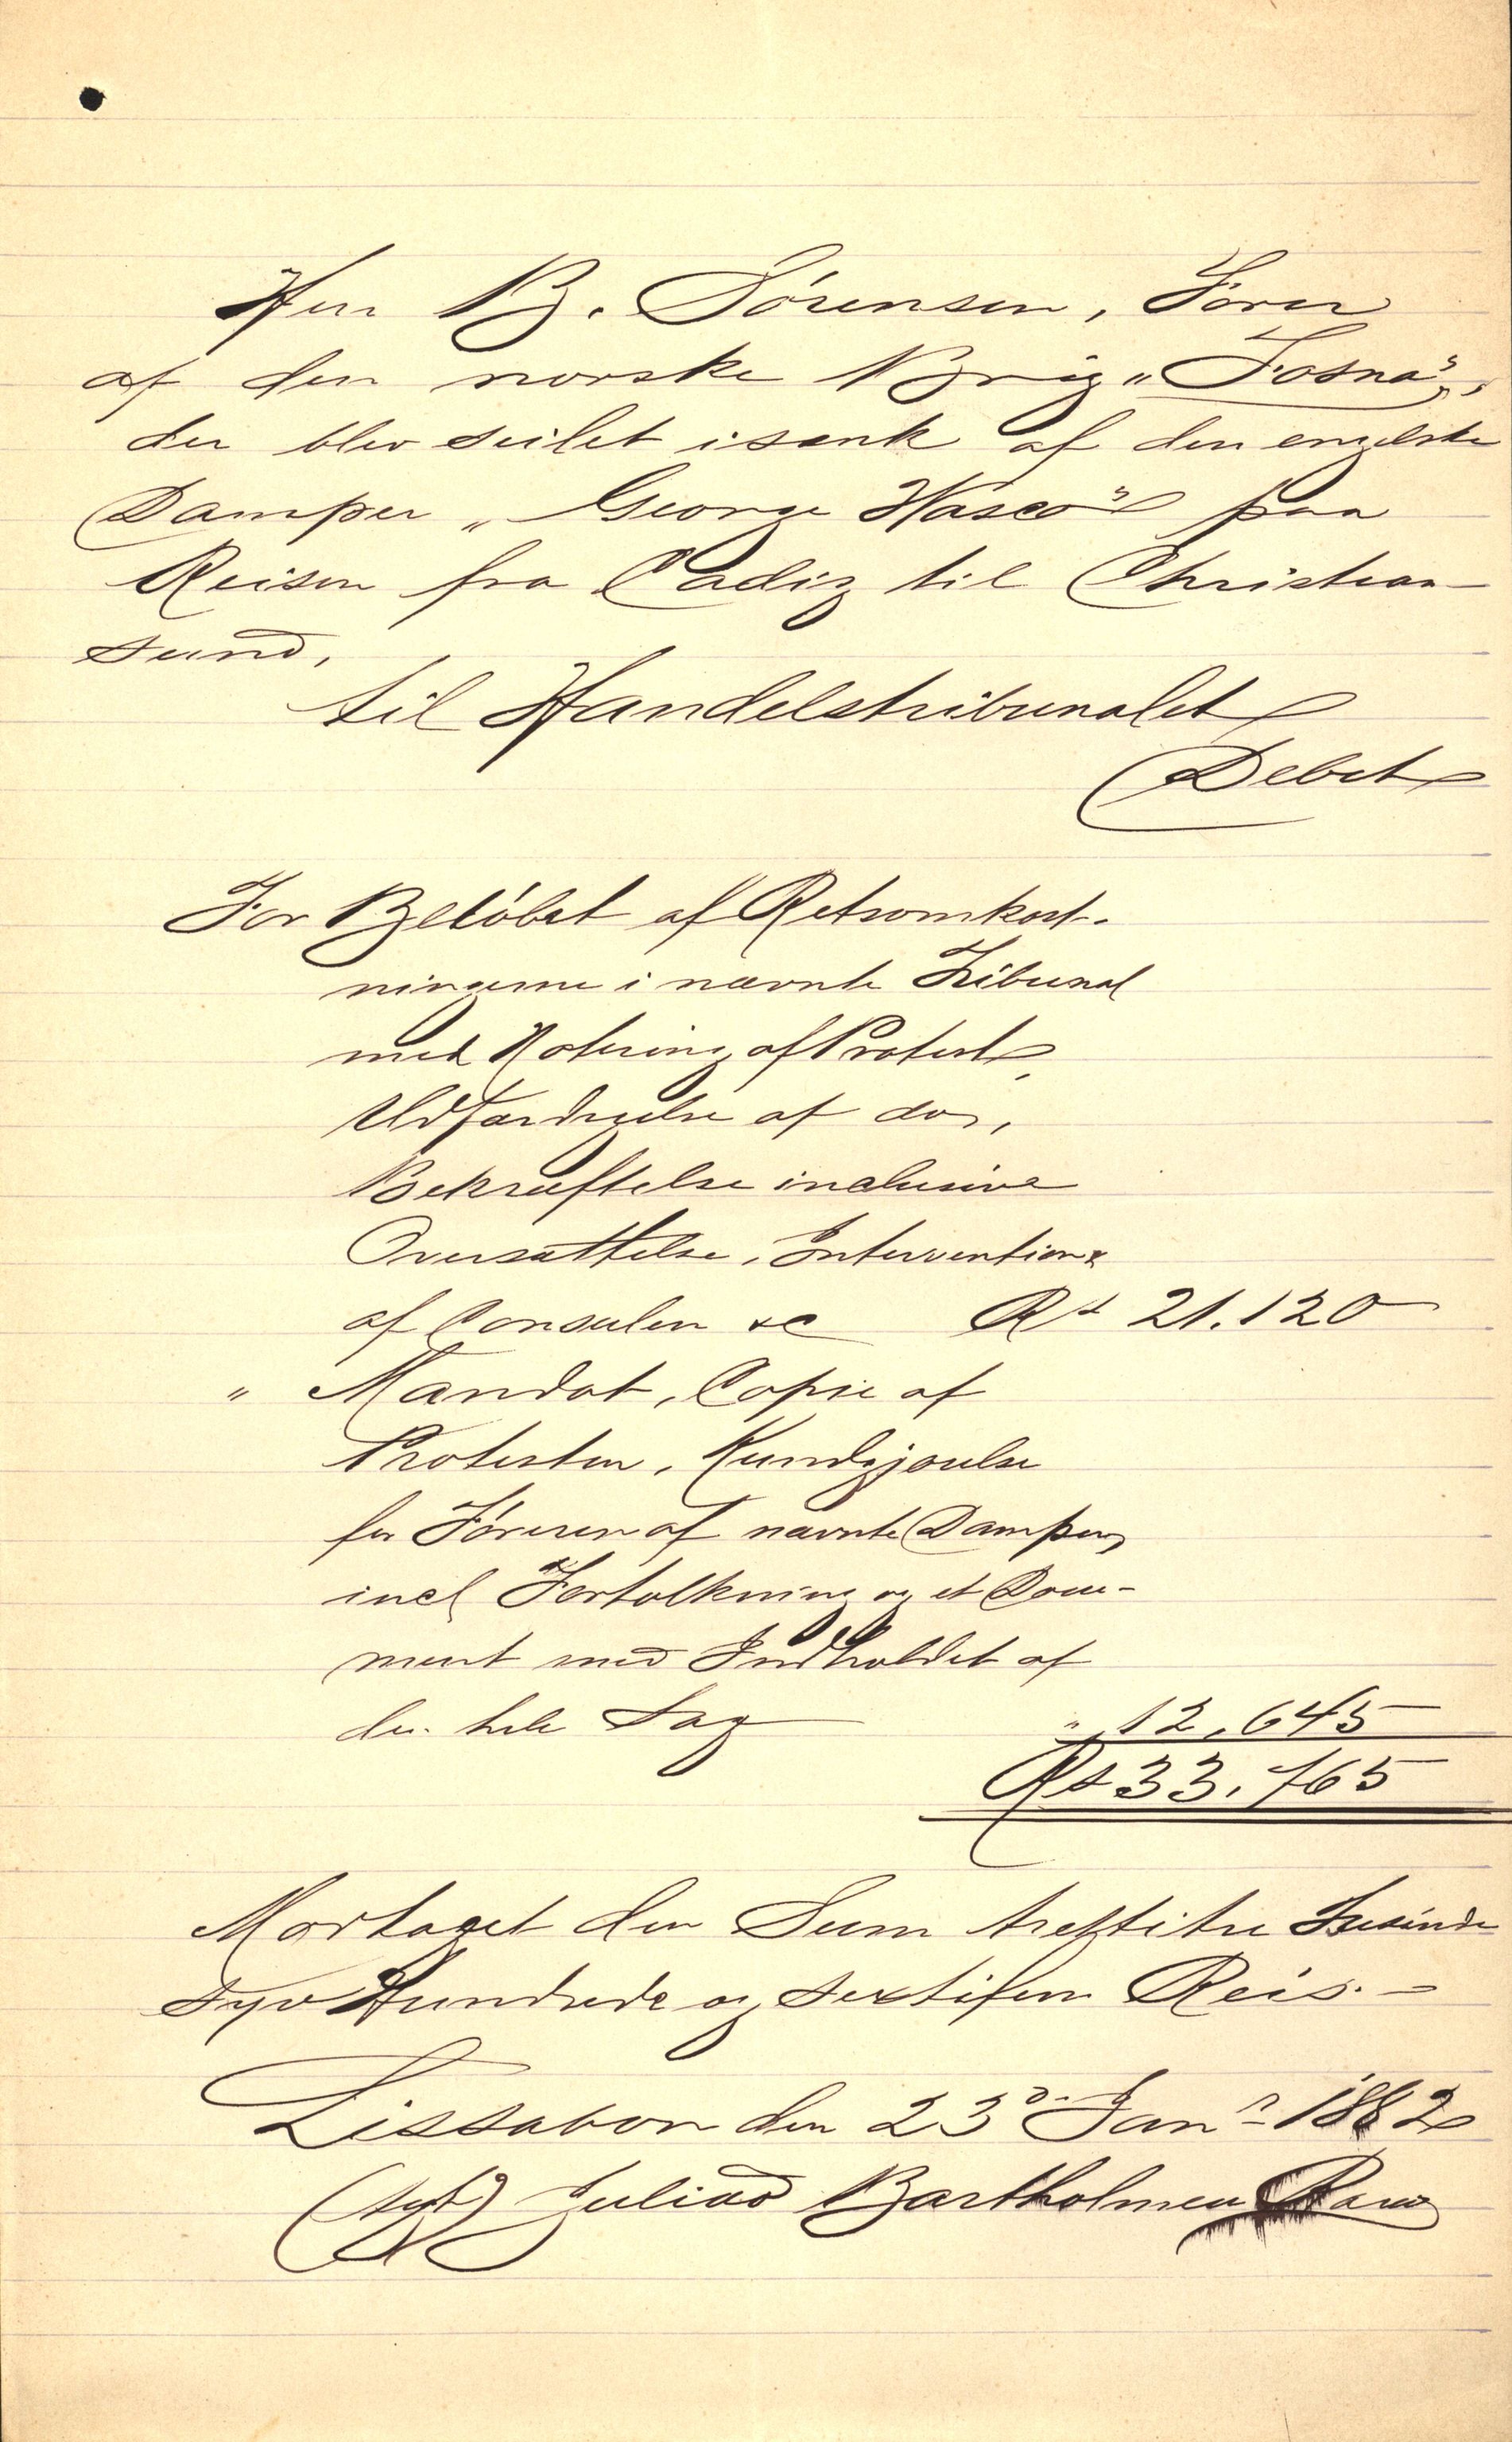 Herr B. Sörensen, Förer
af den norske Brig „Fosna",
der blev seilet isænk af den engelske
Damper „George Vasco" paa
Reisen fra Cadiz til Christian-
sund,
til Handelstribunalet
Debet
For Belöbet af Retsomkost-
ningerne i nævnte Tribunal
med Notering af Protest,
Udfærdigelse af do,
Bekræftelse inclusive
Oversættelse, Intervention
af Consulen &c Rs 21.120
" Mandat, Copie af
Protesten, Kundgjörelse
for Föreren af nævnte Damper,
incl Fortolkning og et Docu-
ment med Indholdet af
den hele Sag " 12,645
Rs 33,765
Modtaget den Sum trettitre Tusinde
syv Hundrede og sextifem Reis. -
Lissabon den 23d Janr 1882
(sgt) Julião Bartholmeu